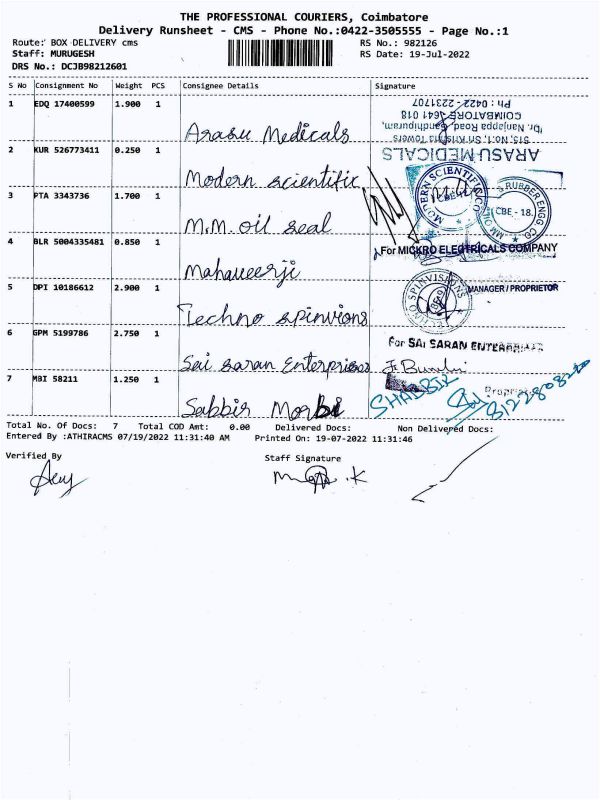 THE PROFESSIONAL COURIERS, Coimbatore
Delivery Runsheet - CMS - Phone No.:0422-3505555 - Page No.:1
Route: BOX DELIVERY cms
RS No.: 982126
Staff: MURUGESH
RS Date: 19-Jul-2022
DRS No.: DCJB98212601
S No Consignment No Weight PCS Consignee Details Signature
1 EDQ 17400599 1.900 1 Arasu Medicals
Ph : 0422 - 2231707
COIMBATORE - 641 018
Dr. Nanjappa Road, Gandhipuram,
ARASU MEDICALS
2 KUR 526773411 0.250 1 Modern scientific
MODERN SCIENTIFIC CO
CBE
3 PTA 3343736 1.700 1 M.M. oil seal
RUBBER ENGG CO
CBE - 18
4 BLR 5004335481 0.850 1 Mahaveerji
For MICKRO ELECTRICALS COMPANY
MANAGER / PROPRIETOR
5 DPI 10186612 2.900 1 Techno spinvions
TECHNO SPINVISIONS
6 GPM 5199786 2.750 1 Sai saran Enterprises
For SAI SARAN ENTERPRISES
7 MBI 58211 1.250 1 Sabbir Morbi
SHABBIR
Total No. Of Docs: 7 Total COD Amt: 0.00 Delivered Docs: Non Delivered Docs:
Entered By :ATHIRACMS 07/19/2022 11:31:40 AM Printed On: 19-07-2022 11:31:46
Verified By
Staff Signature